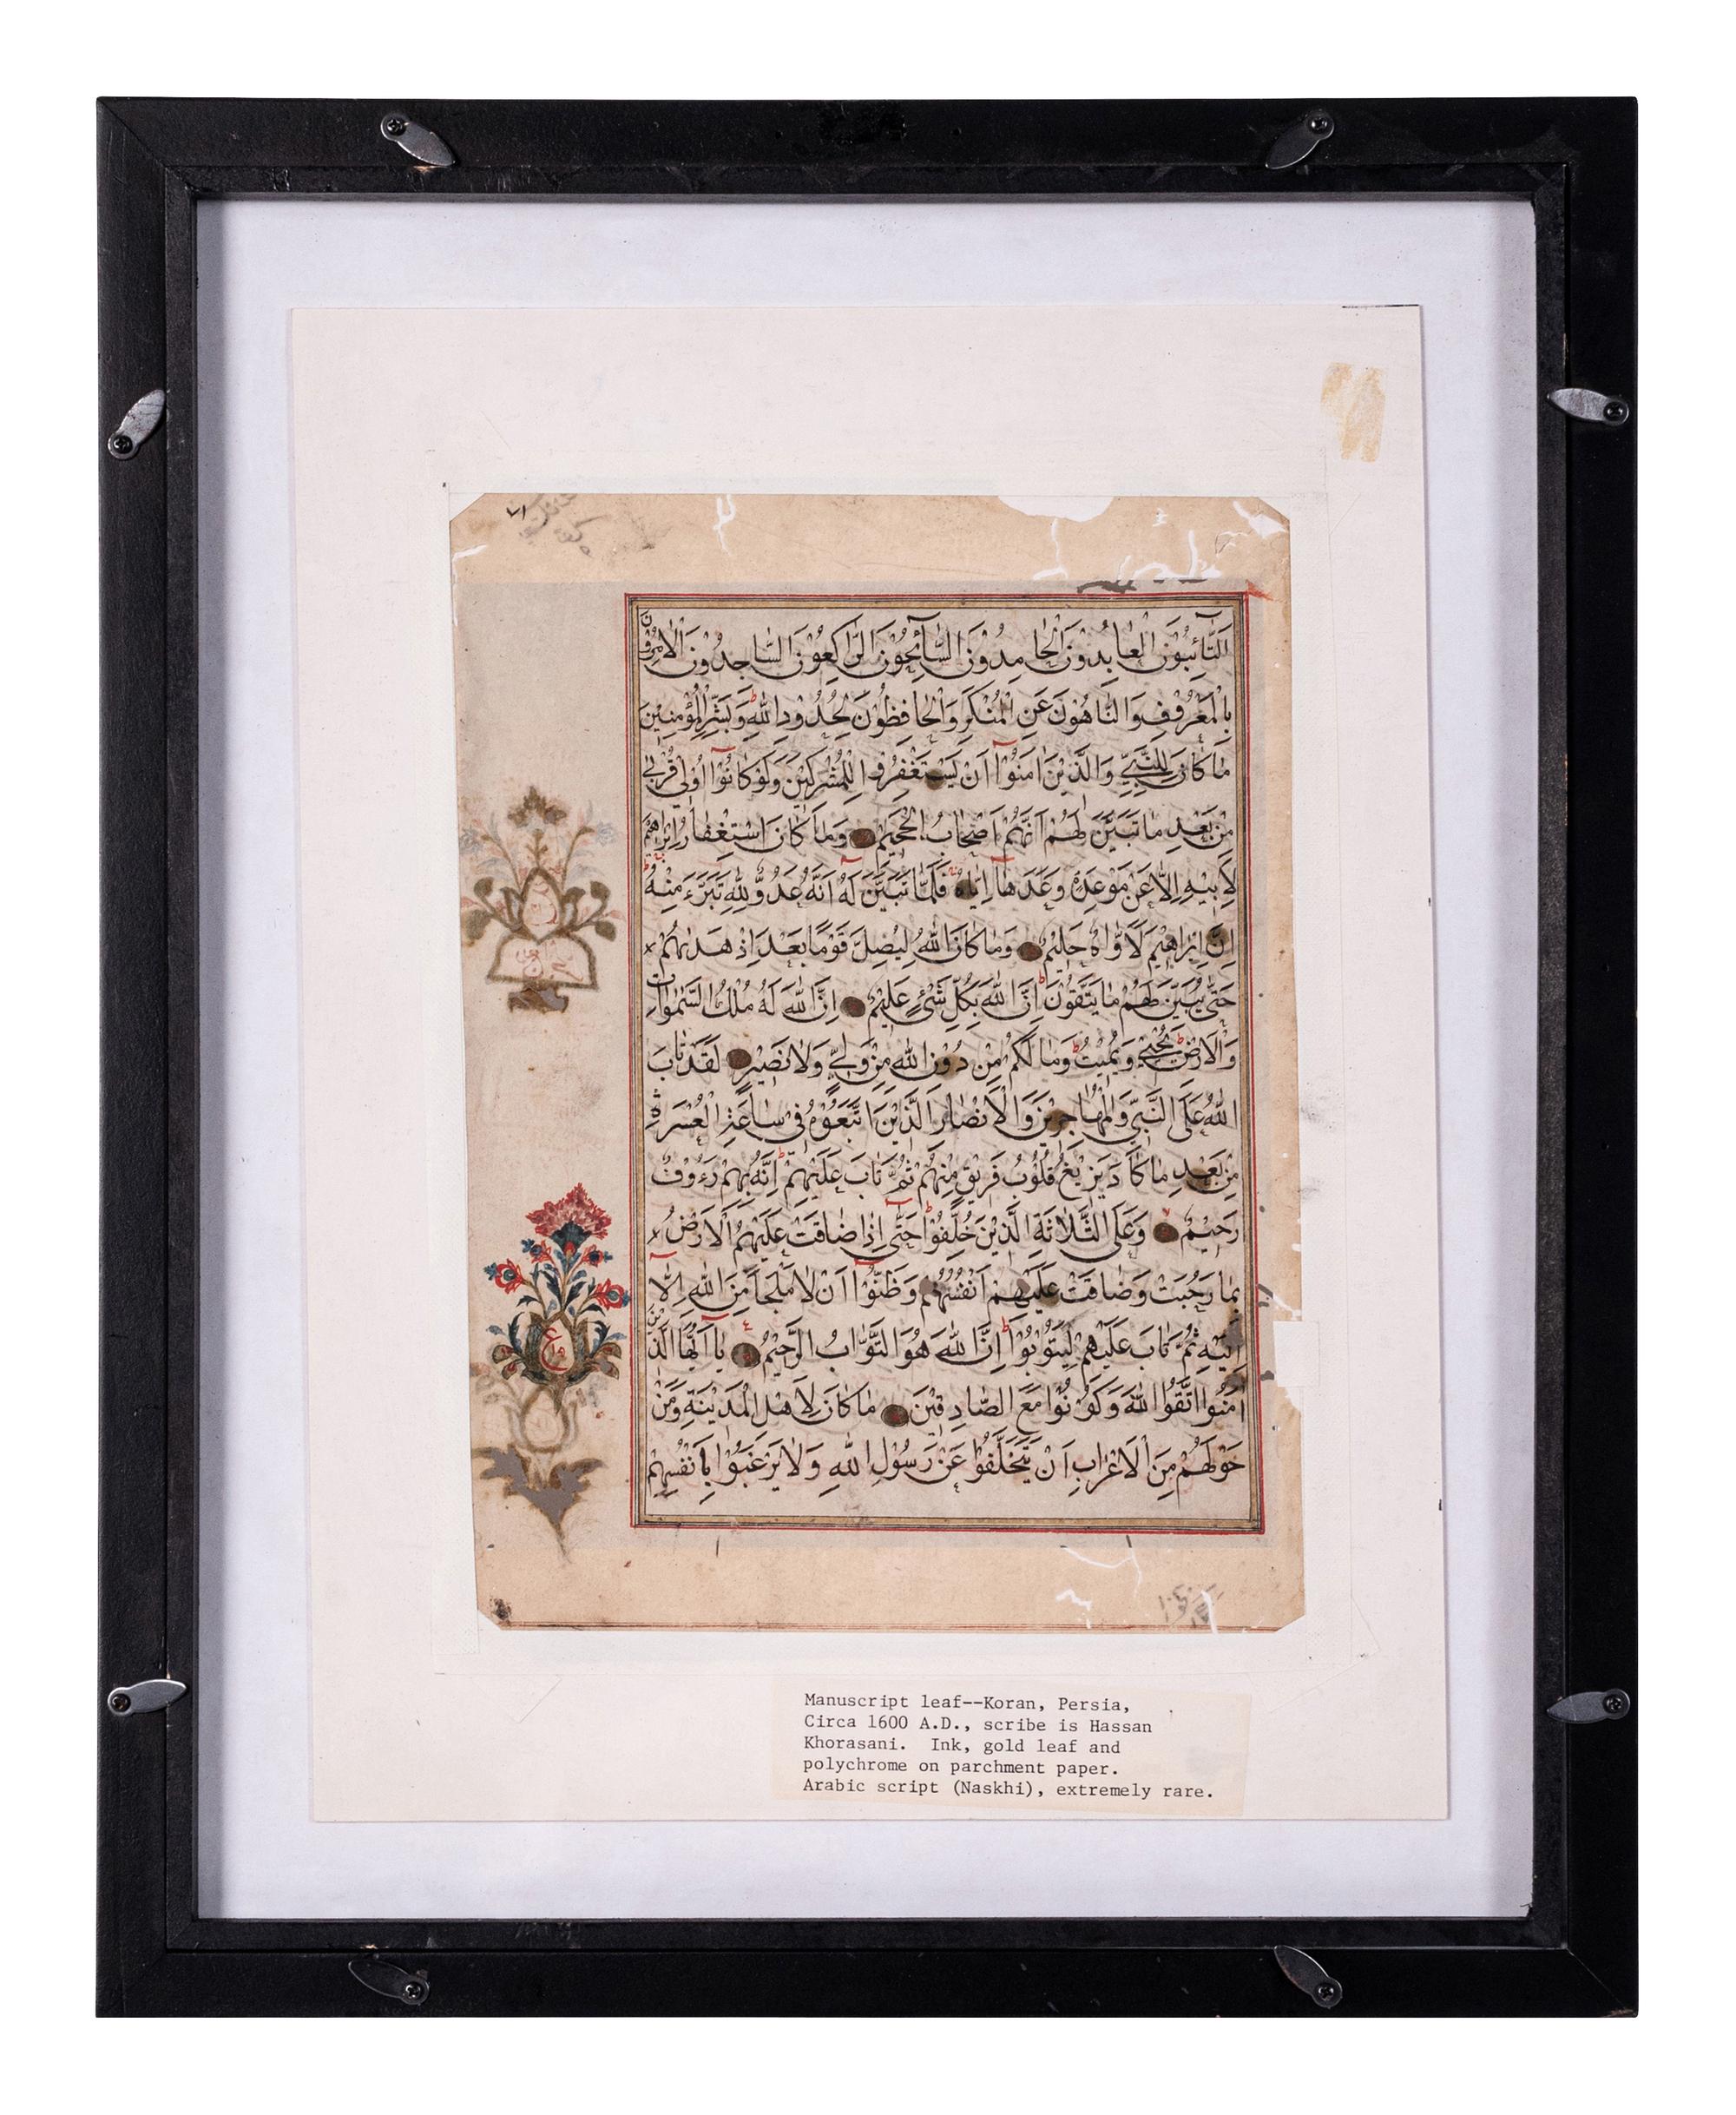 التَّائِبُونَ الْعَابِدُونَ الْحَامِدُونَ السَّائِحُونَ الرَّاكِعُونَ السَّاجِدُونَ الْاٰمِرُونَ
بِالْمَعْرُوفِ وَالنَّاهُونَ عَنِ الْمُنْكَرِ وَالْحَافِظُونَ لِحُدُودِ اللّٰهِ وَبَشِّرِ الْمُؤْمِنِينَ
مَا كَانَ لِلنَّبِيِّ وَالَّذِينَ اٰمَنُوا اَنْ يَسْتَغْفِرُوا لِلْمُشْرِكِينَ وَلَوْ كَانُوا اُولِي قُرْبٰى
مِنْ بَعْدِ مَا تَبَيَّنَ لَهُمْ اَنَّهُمْ اَصْحَابُ الْجَحِيمِ وَمَا كَانَ اسْتِغْفَارُ اِبْرَاهِيمَ
لِاَبِيهِ اِلَّا عَنْ مَوْعِدَةٍ وَعَدَهَا اِيَّاهُ فَلَمَّا تَبَيَّنَ لَهُ اَنَّهُ عَدُوٌّ لِلّٰهِ تَبَرَّءَ مِنْهُ
اِنَّ اِبْرَاهِيمَ لَاَوَّاهٌ حَلِيمٌ وَمَا كَانَ اللّٰهُ لِيُضِلَّ قَوْمًا بَعْدَ اِذْ هَدٰيهُمْ
حَتّٰى يُبَيِّنَ لَهُمْ مَا يَتَّقُونَ اِنَّ اللّٰهَ بِكُلِّ شَيْءٍ عَلِيمٌ اِنَّ اللّٰهَ لَهُ مُلْكُ السَّمٰوَاتِ
وَالْاَرْضِ يُحْيِي وَيُمِيتُ وَمَا لَكُمْ مِنْ دُونِ اللّٰهِ مِنْ وَلِيٍّ وَلَا نَصِيرٍ لَقَدْ تَابَ
اللّٰهُ عَلَى النَّبِيِّ وَالْمُهَاجِرِينَ وَالْاَنْصَارِ الَّذِينَ اتَّبَعُوهُ فِي سَاعَةِ الْعُسْرَةِ
مِنْ بَعْدِ مَا كَادَ يَزِيغُ قُلُوبُ فَرِيقٍ مِنْهُمْ ثُمَّ تَابَ عَلَيْهِمْ اِنَّهُ بِهِمْ رَءُوفٌ
رَحِيمٌ وَعَلَى الثَّلَاثَةِ الَّذِينَ خُلِّفُوا حَتّٰى اِذَا ضَاقَتْ عَلَيْهِمُ الْاَرْضُ
بِمَا رَحُبَتْ وَضَاقَتْ عَلَيْهِمْ اَنْفُسُهُمْ وَظَنُّوا اَنْ لَا مَلْجَاَ مِنَ اللّٰهِ اِلَّا
اِلَيْهِ ثُمَّ تَابَ عَلَيْهِمْ لِيَتُوبُوا اِنَّ اللّٰهَ هُوَ التَّوَّابُ الرَّحِيمُ يَا اَيُّهَا الَّذِينَ
اٰمَنُوا اتَّقُوا اللّٰهَ وَكُونُوا مَعَ الصَّادِقِينَ مَا كَانَ لِاَهْلِ الْمَدِينَةِ وَمَنْ
حَوْلَهُمْ مِنَ الْاَعْرَابِ اَنْ يَتَخَلَّفُوا عَنْ رَسُولِ اللّٰهِ وَلَا يَرْغَبُوا بِاَنْفُسِهِمْ
Manuscript leaf--Koran, Persia,
Circa 1600 A.D., scribe is Hassan
Khorasani. Ink, gold leaf and
polychrome on parchment paper.
Arabic script (Naskhi), extremely rare.